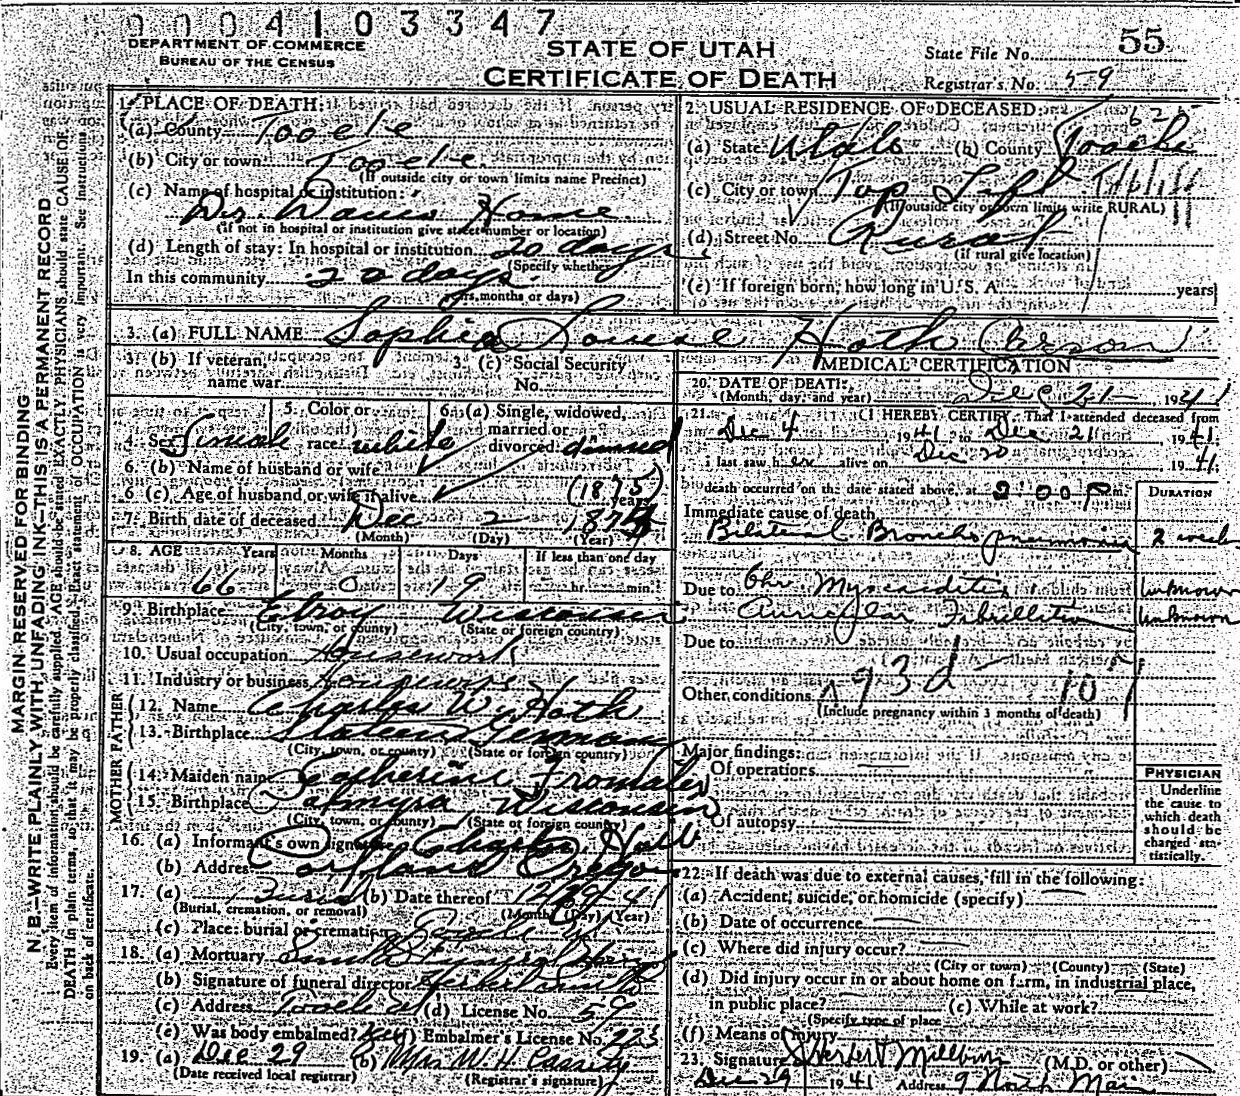 0004103347
DEPARTMENT OF COMMERCE
BUREAU OF THE CENSUS
STATE OF UTAH
CERTIFICATE OF DEATH
State File No. 55
Registrar's No. 59
MARGIN RESERVED FOR BINDING
N. B.—WRITE PLAINLY WITH UNFADING INK—THIS IS A PERMANENT RECORD
Every item of information should be carefully supplied. AGE should be stated EXACTLY. PHYSICIANS should state CAUSE OF
DEATH in plain terms, so that it may be properly classified. Exact statement of OCCUPATION is very important. See instructions
on back of certificate.
1. PLACE OF DEATH:
(a) County Tooele
(b) City or town Tooele
(If outside city or town limits name Precinct)
(c) Name of hospital or institution:
Home
(If not in hospital or institution give street number or location)
(d) Length of stay: In hospital or institution 20 days
(Specify whether
In this community 20 days
years, months or days)
2. USUAL RESIDENCE OF DECEASED:
(a) State Utah (b) County Tooele
(c) City or town
(If outside city or town limits write RURAL)
(d) Street No. Rural
(If rural give location)
(e) If foreign born, how long in U. S. A. years
3. (a) FULL NAME Sophia Louise Hoth
3. (b) If veteran, name war
3. (c) Social Security No.
4. Sex Female
5. Color or race white
6. (a) Single, widowed, married or divorced
6. (b) Name of husband or wife
6 (c) Age of husband or wife if alive years
(1875)
7. Birth date of deceased Dec 2 187
(Month) (Day) (Year)
8. AGE Years Months Days If less than one day
66 0 19 hr. min.
9. Birthplace Elroy Wisconsin
(City, town, or county) (State or foreign country)
10. Usual occupation Housework
11. Industry or business
FATHER
12. Name Charles W. Hoth
13. Birthplace Germany
(City, town, or county) (State or foreign country)
MOTHER
14. Maiden name Catherine
15. Birthplace Palmyra Wisconsin
(City, town, or county) (State or foreign country)
16. (a) Informant's own signature Charles Hoth
(b) Address Portland Oregon
17. (a) Burial (b) Date thereof 12 29 41
(Burial, cremation, or removal) (Month) (Day) (Year)
(c) Place: burial or cremation
18. (a) Mortuary
(b) Signature of funeral director
(c) Address Tooele (d) License No. 59
(e) Was body embalmed? yes (f) Embalmer's License No. 223
19. (a) Dec 29 (b) Mrs W. H. Cassity
(Date received local registrar) (Registrar's signature)
MEDICAL CERTIFICATION
20. DATE OF DEATH: Dec 21 1941
(Month, day, and year)
21. I HEREBY CERTIFY, That I attended deceased from
Dec 4 1941 to Dec 21 1941
I last saw her alive on Dec 20 1941
death occurred on the date stated above, at 2:00 P m.
DURATION
Immediate cause of death
Bilateral Broncho pneumonia 2 weeks
Due to Chr Myocarditis unknown
Auricular Fibrillation unknown
Due to
Other conditions 93d 107
(Include pregnancy within 3 months of death)
Major findings:
Of operations
Of autopsy
PHYSICIAN
Underline
the cause to
which death
should be
charged sta-
tistically.
22. If death was due to external causes, fill in the following:
(a) Accident, suicide, or homicide (specify)
(b) Date of occurrence
(c) Where did injury occur?
(City or town) (County) (State)
(d) Did injury occur in or about home on farm, in industrial place,
in public place? (e) While at work?
(Specify type of place
(f) Means of injury
23. Signature Herbert Millburn (M.D. or other)
Dec 29 1941 Address 9 North Main